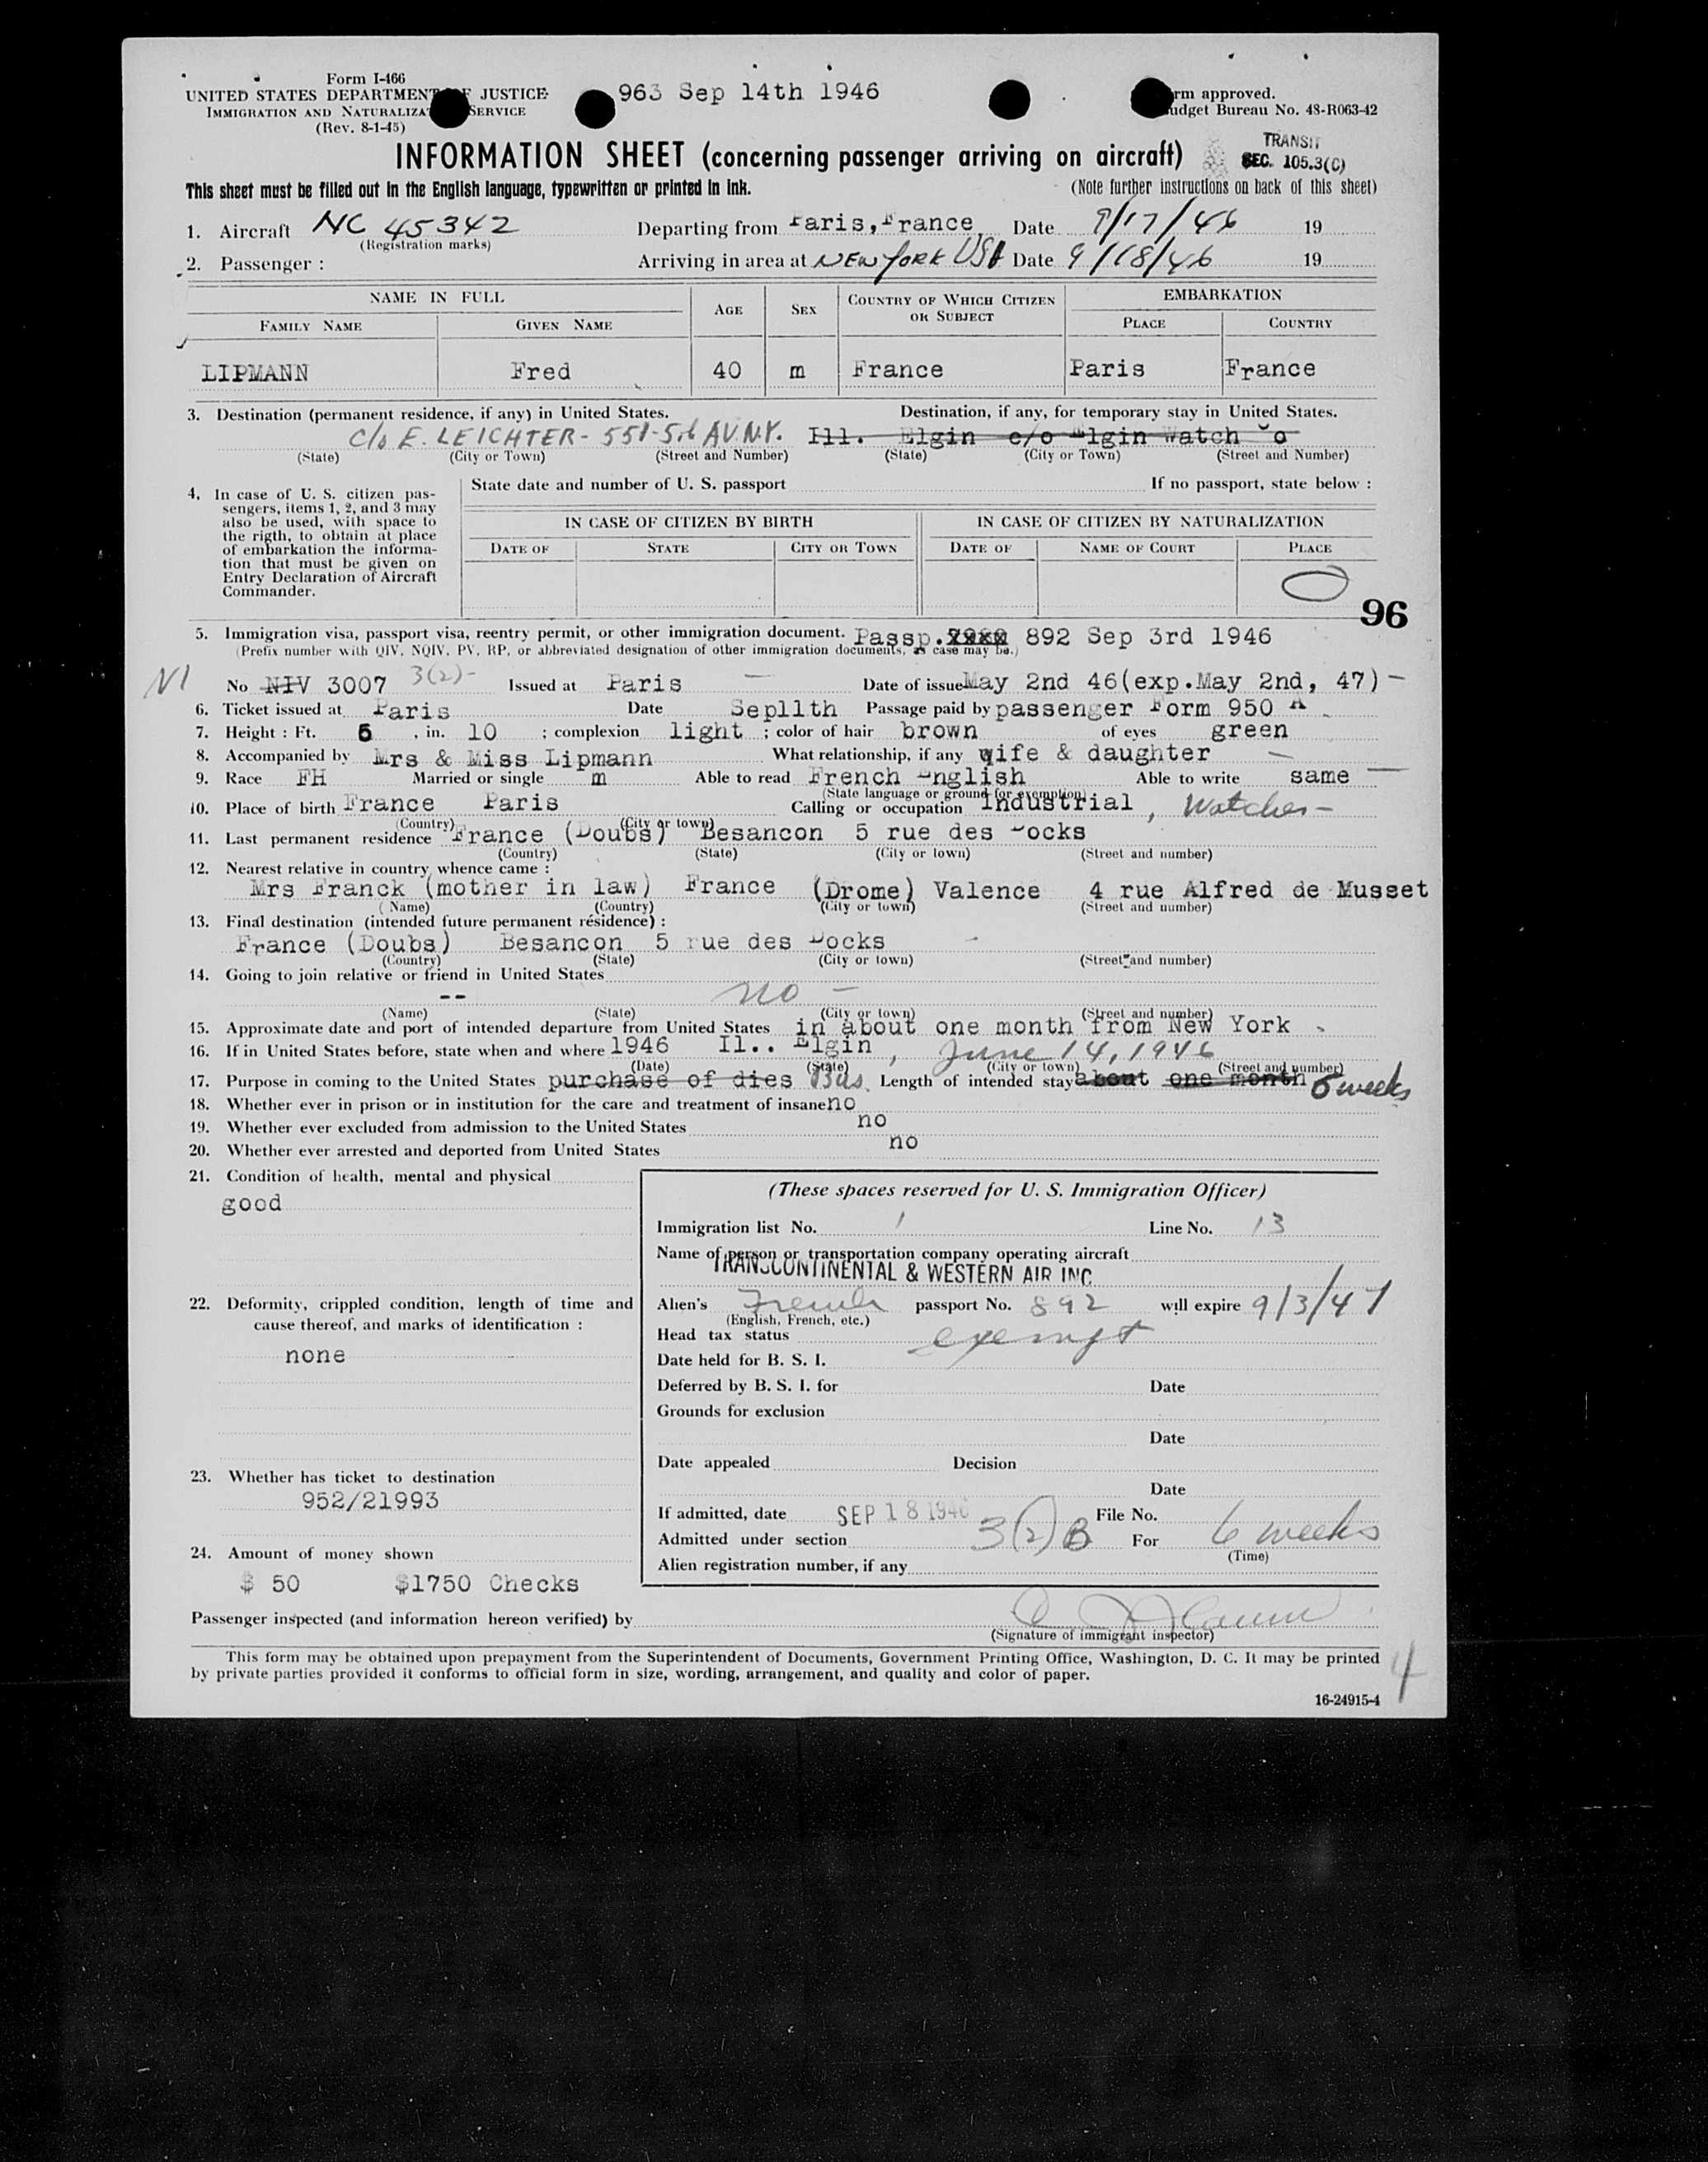 Form I-466
UNITED STATES DEPARTMENT OF JUSTICE
IMMIGRATION AND NATURALIZA SERVICE
(Rev. 8-1-45)
963 Sep 14th 1946
rm approved.
udget Bureau No. 48-R063-42
INFORMATION SHEET (concerning passenger arriving on aircraft)
TRANSIT
SEC. 105.3(C)
This sheet must be filled out in the English language, typewritten or printed in ink.
(Note further instructions on back of this sheet)
1. Aircraft NC 45342 Departing from Paris,France Date 9/17/46 19
(Registration marks)
2. Passenger : Arriving in area at NEW YORK USA Date 9/18/46 19
NAME IN FULL AGE SEX COUNTRY OF WHICH CITIZEN OR SUBJECT EMBARKATION
FAMILY NAME GIVEN NAME PLACE COUNTRY
LIPMANN Fred 40 m France Paris France
3. Destination (permanent residence, if any) in United States. Destination, if any, for temporary stay in United States.
c/o E. LEICHTER - 551-5th AV. N.Y. Ill. Elgin c/o Elgin Watch Co
(State) (City or Town) (Street and Number) (State) (City or Town) (Street and Number)
4. In case of U. S. citizen pas-
sengers, items 1, 2, and 3 may
also be used, with space to
the rigth, to obtain at place
of embarkation the informa-
tion that must be given on
Entry Declaration of Aircraft
Commander.
State date and number of U. S. passport If no passport, state below :
IN CASE OF CITIZEN BY BIRTH IN CASE OF CITIZEN BY NATURALIZATION
DATE OF STATE CITY OR TOWN DATE OF NAME OF COURT PLACE
96
5. Immigration visa, passport visa, reentry permit, or other immigration document. Passp. 892 Sep 3rd 1946
(Prefix number with QIV, NQIV, PV, RP, or abbreviated designation of other immigration documents, as case may be.)
NI No NIV 3007 3(2)- Issued at Paris Date of issue May 2nd 46(exp.May 2nd, 47) -
6. Ticket issued at Paris Date Sep11th Passage paid by passenger Form 950 A
7. Height : Ft. 5 , in. 10 ; complexion light ; color of hair brown of eyes green
8. Accompanied by Mrs & Miss Lipmann What relationship, if any wife & daughter
9. Race FH Married or single m Able to read French English Able to write same
(State language or ground for exemption)
10. Place of birth France Paris Calling or occupation Industrial , Watches -
(Country) (City or town)
11. Last permanent residence France (Doubs) Besancon 5 rue des Docks
(Country) (State) (City or town) (Street and number)
12. Nearest relative in country whence came :
Mrs Franck (mother in law) France (Drome) Valence 4 rue Alfred de Musset
(Name) (Country) (City or town) (Street and number)
13. Final destination (intended future permanent résidence) :
France (Doubs) Besancon 5 rue des Docks
(Country) (State) (City or town) (Street and number)
14. Going to join relative or friend in United States
-- no -
(Name) (State) (City or town) (Street and number)
15. Approximate date and port of intended departure from United States in about one month from New York .
16. If in United States before, state when and where 1946 Il.. Elgin , June 14, 1946
(Date) (State) (City or town) (Street and number)
17. Purpose in coming to the United States purchase of dies Bus. Length of intended stay about one month 6 weeks
18. Whether ever in prison or in institution for the care and treatment of insane no
19. Whether ever excluded from admission to the United States no
20. Whether ever arrested and deported from United States no
21. Condition of health, mental and physical
good
22. Deformity, crippled condition, length of time and
cause thereof, and marks of identification :
none
23. Whether has ticket to destination
952/21993
24. Amount of money shown
$ 50 $1750 Checks
(These spaces reserved for U. S. Immigration Officer)
Immigration list No. 1 Line No. 13
Name of person or transportation company operating aircraft
TRANSCONTINENTAL & WESTERN AIR INC
Alien's French passport No. 892 will expire 9/3/47
(English, French, etc.)
Head tax status exempt
Date held for B. S. I.
Deferred by B. S. I. for Date
Grounds for exclusion
Date
Date appealed Decision
Date
If admitted, date SEP 18 1946 File No.
Admitted under section 3(2)B For 6 weeks
(Time)
Alien registration number, if any
Passenger inspected (and information hereon verified) by
(Signature of immigrant inspector)
This form may be obtained upon prepayment from the Superintendent of Documents, Government Printing Office, Washington, D. C. It may be printed
by private parties provided it conforms to official form in size, wording, arrangement, and quality and color of paper.
4
16-24915-4